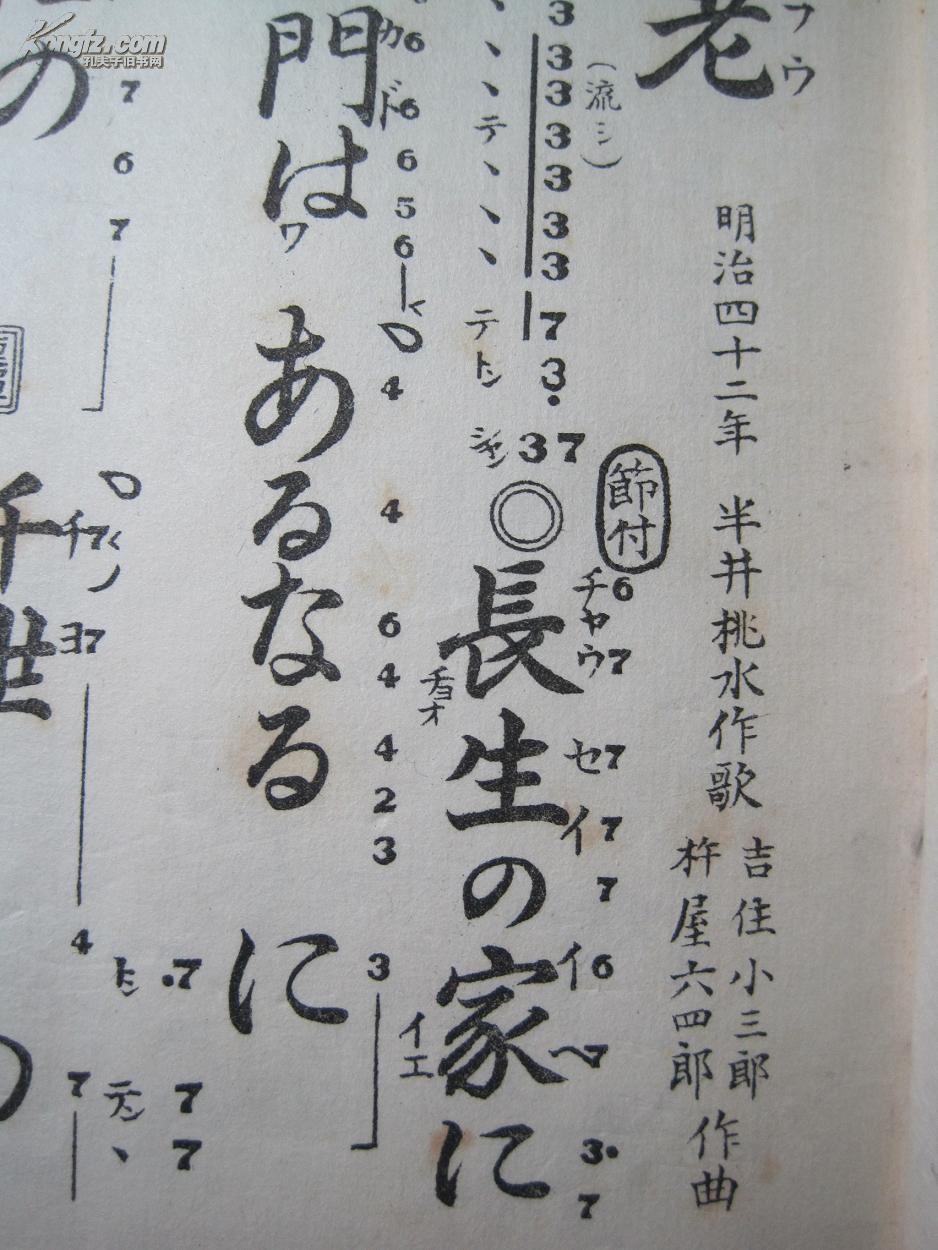 老
フウ
明治四十二年 半井桃水作歌
吉住小三郎
杵屋六四郎
作曲
(流シ)
3
3
3
3
3
3
3
7
3.
37
、
、
、
テ
、
、
、
テ
トン
シャン
節付
◎長生の家に
チヤウ
セイ
イヘ
チヨオ
イエ
6
7
7
7
7
6
7
3.
7
門はあるなるに
カド
ワ
6
6
6
5
6
4
4
6
4
4
2
3
3
の
7
6
7
千世
チ
ヨ
7
7
4
7
トン
テン
、
.7
7
7
Kongfz.com
孔夫子旧书网